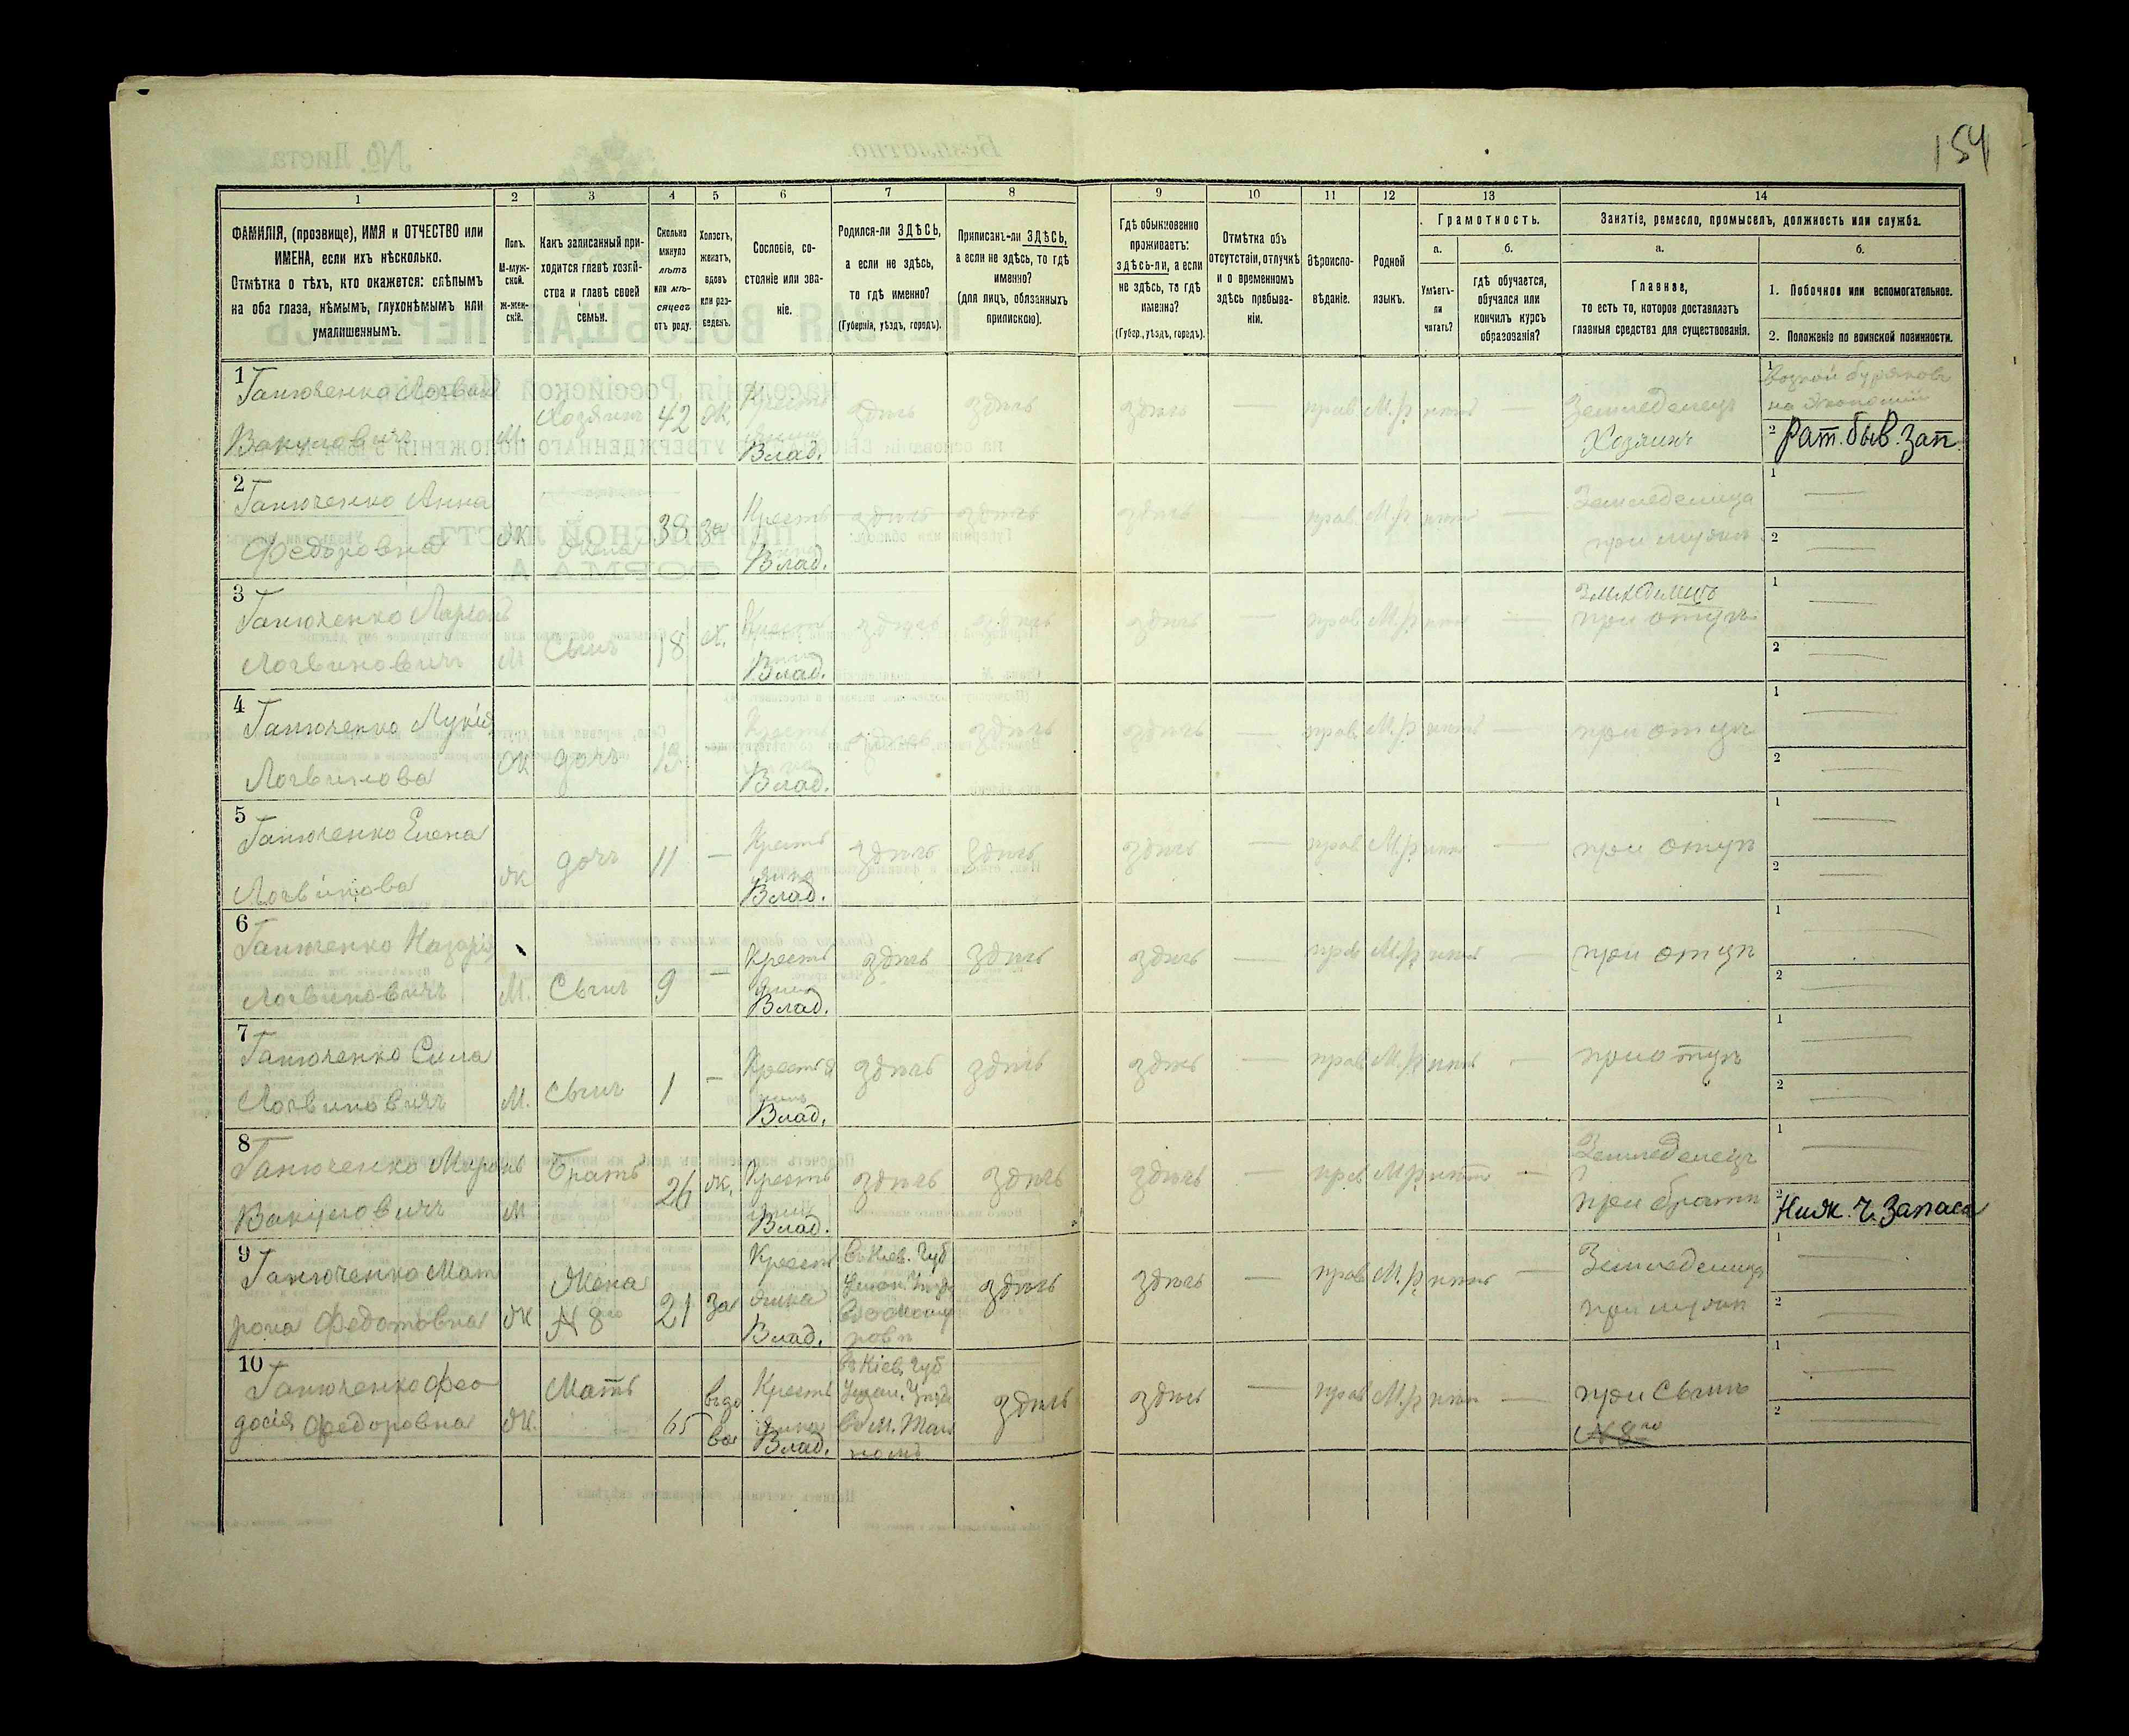 154
1
2
3
4
5
6
7
8
9
10
11
12
13
14
ФАМИЛІЯ, (прозвище), ИМЯ и ОТЧЕСТВО или
ИМЕНА, если ихъ нѣсколько.
Отмѣтка о тѣхъ, кто окажется: слѣпымъ
на оба глаза, нѣмымъ, глухонѣмымъ или
умалишеннымъ.
Полъ.
М-муж-
ской.
Ж-жен-
скій.
Какъ записанный при-
ходится главѣ хозяй-
ства и главѣ своей
семьи.
Сколько
минуло
лѣтъ
или мѣ-
сяцевъ
отъ роду.
Холостъ,
женатъ,
вдовъ
или раз-
веденъ.
Сословіе, со-
стояніе или зва-
ніе.
Родился-ли ЗДѢСЬ,
а если не здѣсь,
то гдѣ именно?
(Губернія, уѣздъ, городъ).
Приписанъ-ли ЗДѢСЬ,
а если не здѣсь, то гдѣ
именно?
(для лицъ, обязанныхъ
припискою).
Гдѣ обыкновенно
проживаетъ:
здѣсь-ли, а если
не здѣсь, то гдѣ
именно?
(Губер., уѣздъ, городъ).
Отмѣтка объ
отсутствіи, отлучкѣ
и о временномъ
здѣсь пребыва-
ніи.
Вѣроиспо-
вѣданіе.
Родной
языкъ.
Грамотность.
а.
Умѣетъ-
ли
читать?
б.
гдѣ обучается,
обучался или
кончилъ курсъ
образованія?
Занятіе, ремесло, промыселъ, должность или служба.
а.
Главное,
то есть то, которое доставляетъ
главныя средства для существованія.
б.
1. Побочное или вспомогательное.
2. Положеніе по воинской повинности.
1
Ганюченко Логвинъ
Вакуловичъ
М. Хозяинъ 42 ж. Крест
Влад.
здѣсь здѣсь здѣсь — прав М.р нѣтъ —
Земледелецъ
Хозяинъ
1 возкой бураковъ
на Экономіи
2 Рат. быв. зап.
2
Ганюченко Анна
Федоровна
Ж Жена 38 за Кресть
Влад.
здѣсь здѣсь здѣсь — прав М.р нѣтъ —
Земледелица
при мужѣ
1 —
2 —
3
Ганюченко Ларіонъ
Логвиновичъ
М Сынъ 18 х. Кресть
Влад.
здѣсь здѣсь здѣсь — прав М.р нѣтъ —
при отцѣ
1 —
2 —
4
Ганюченко Лукія
Логвинова
Ж дочь 13 Кресть
Влад.
здѣсь здѣсь здѣсь — прав М.р нѣтъ —
при отцѣ
1 —
2 —
5
Ганюченко Елена
Логвинова
Ж дочь 11 — Кресть
янка
Влад.
здѣсь здѣсь здѣсь — прав М.р нѣтъ —
при отцѣ
1 —
2 —
6
Ганюченко Назарій
Логвиновичъ
М. Сынъ 9 — Кресть
Влад.
здѣсь здѣсь здѣсь — прав М.р нѣтъ —
при отцѣ
1 —
2 —
7
Ганюченко Сила
Логвиновичъ
М. Сынъ 1 — Крестья
нинъ
Влад.
здѣсь здѣсь здѣсь — прав М.р нѣтъ —
при отцѣ
1 —
2 —
8
Ганюченко Миронъ
Вакуловичъ
М Братъ 26 ж. Кресть
Влад.
здѣсь здѣсь здѣсь — прав М.р нѣтъ —
Земледелецъ
при братѣ
1 —
2 Ниж. ч. Запаса
9
Ганюченко Мат
рона Федотовна
Ж Жена
№ 8го
21 за Крест
янка
Влад.
въ Кіев. Губ
Уман. Уѣзд
здѣсь здѣсь — прав М.р нѣтъ —
Земледелица
при мужѣ
1 —
2 —
10
Ганюченко Фео
досія Федоровна
Ж. Мать 65 вдо
ва
Кресть
янка
Влад.
въ Кіев. Губ
Уман. Уѣзд
в М. Таль
номъ
здѣсь здѣсь — прав М.р нѣтъ —
при Сынѣ
№ 8го
1 —
2 —